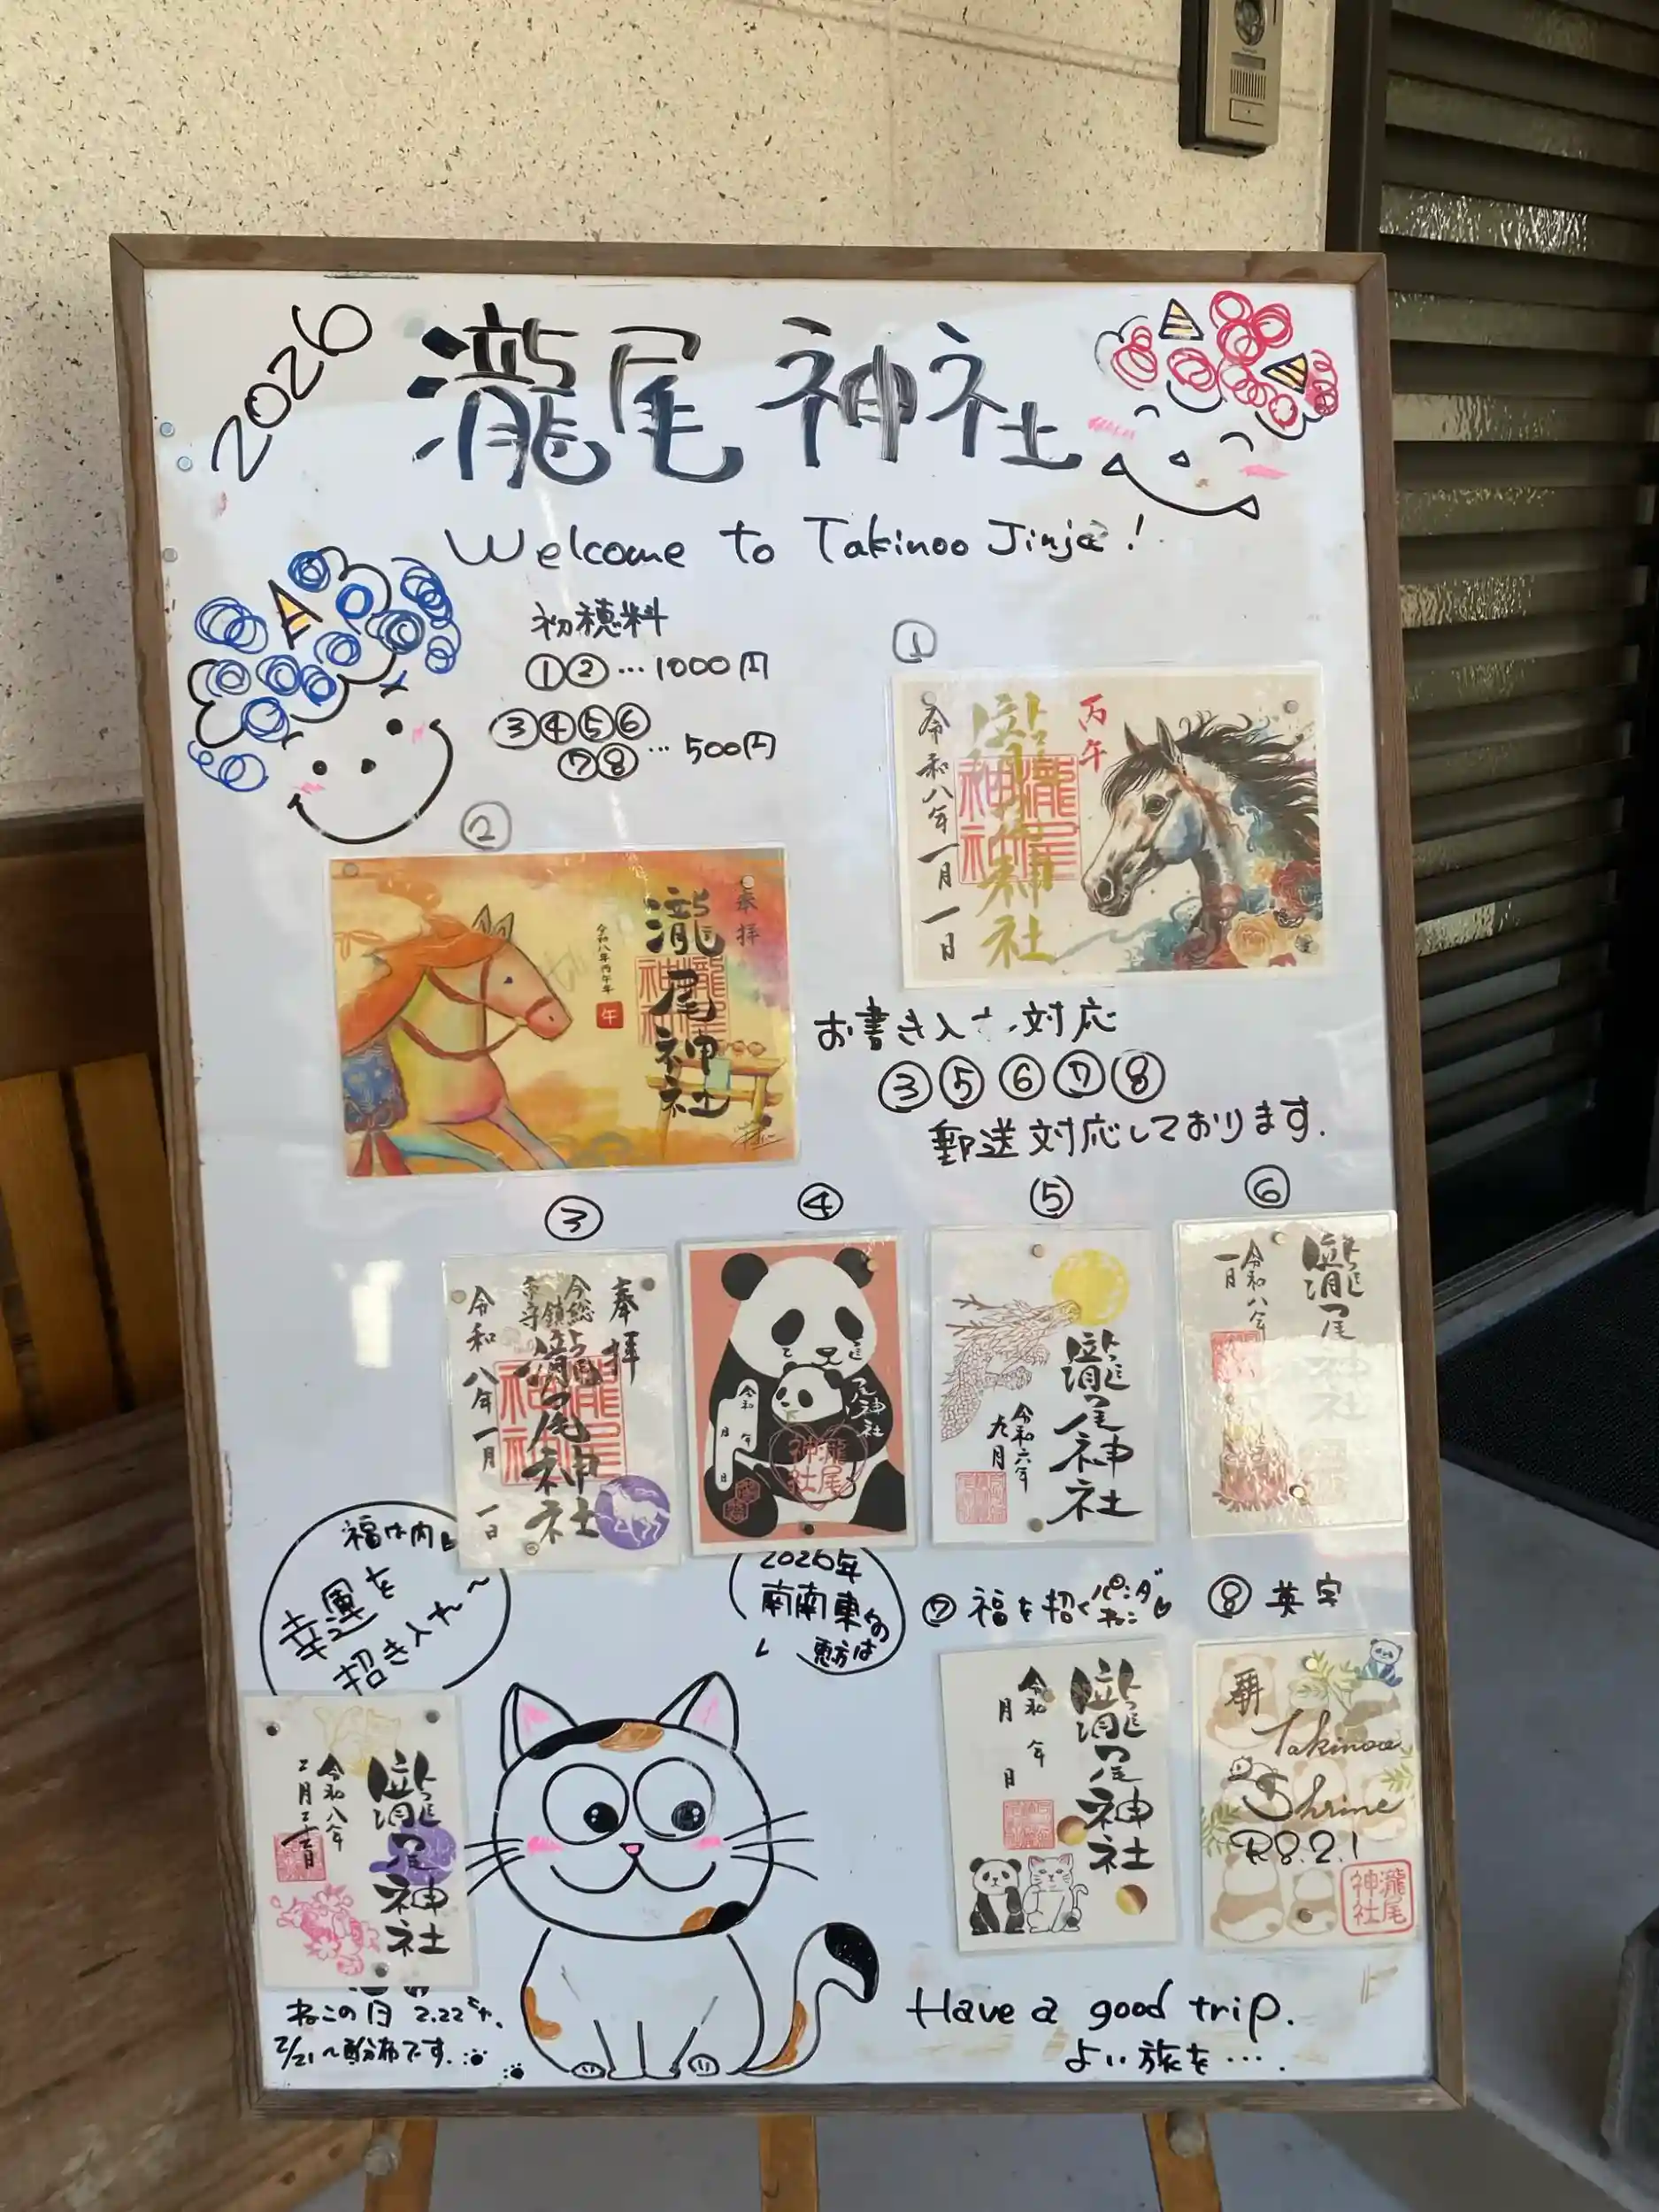 2026
瀧尾神社
Welcome to Takinoo Jinja!
初穂料
①②…1000円
③④⑤⑥
⑦⑧…500円
①
丙午
瀧尾神社
瀧尾神社
令和八年一月一日
②
奉拝
瀧尾神社
瀧尾神社
令和八年丙午年
午
お書き入 対応
③⑤⑥⑦⑧
郵送対応しております.
③
奉拝
今総
市鎮守
瀧尾神社
瀧尾神社
令和八年一月一日
④
瀧尾神社
令和 年 月 日
瀧尾神社
⑤
瀧尾神社
令和六年
九月
⑥
瀧尾神社
令和八年
一月
福は内
幸運を
招き入れ〜
2026年
南南東
恵方は
⑦福を招くパンダ
ねこ
⑧英字
瀧尾神社
令和 年
月 日
Takinoo
Shrine
R8.2.1
瀧尾神社
瀧尾神社
令和八年
二月二十二日
ねこの日 2.22
2/21〜配布です.
Have a good trip.
よい旅を….